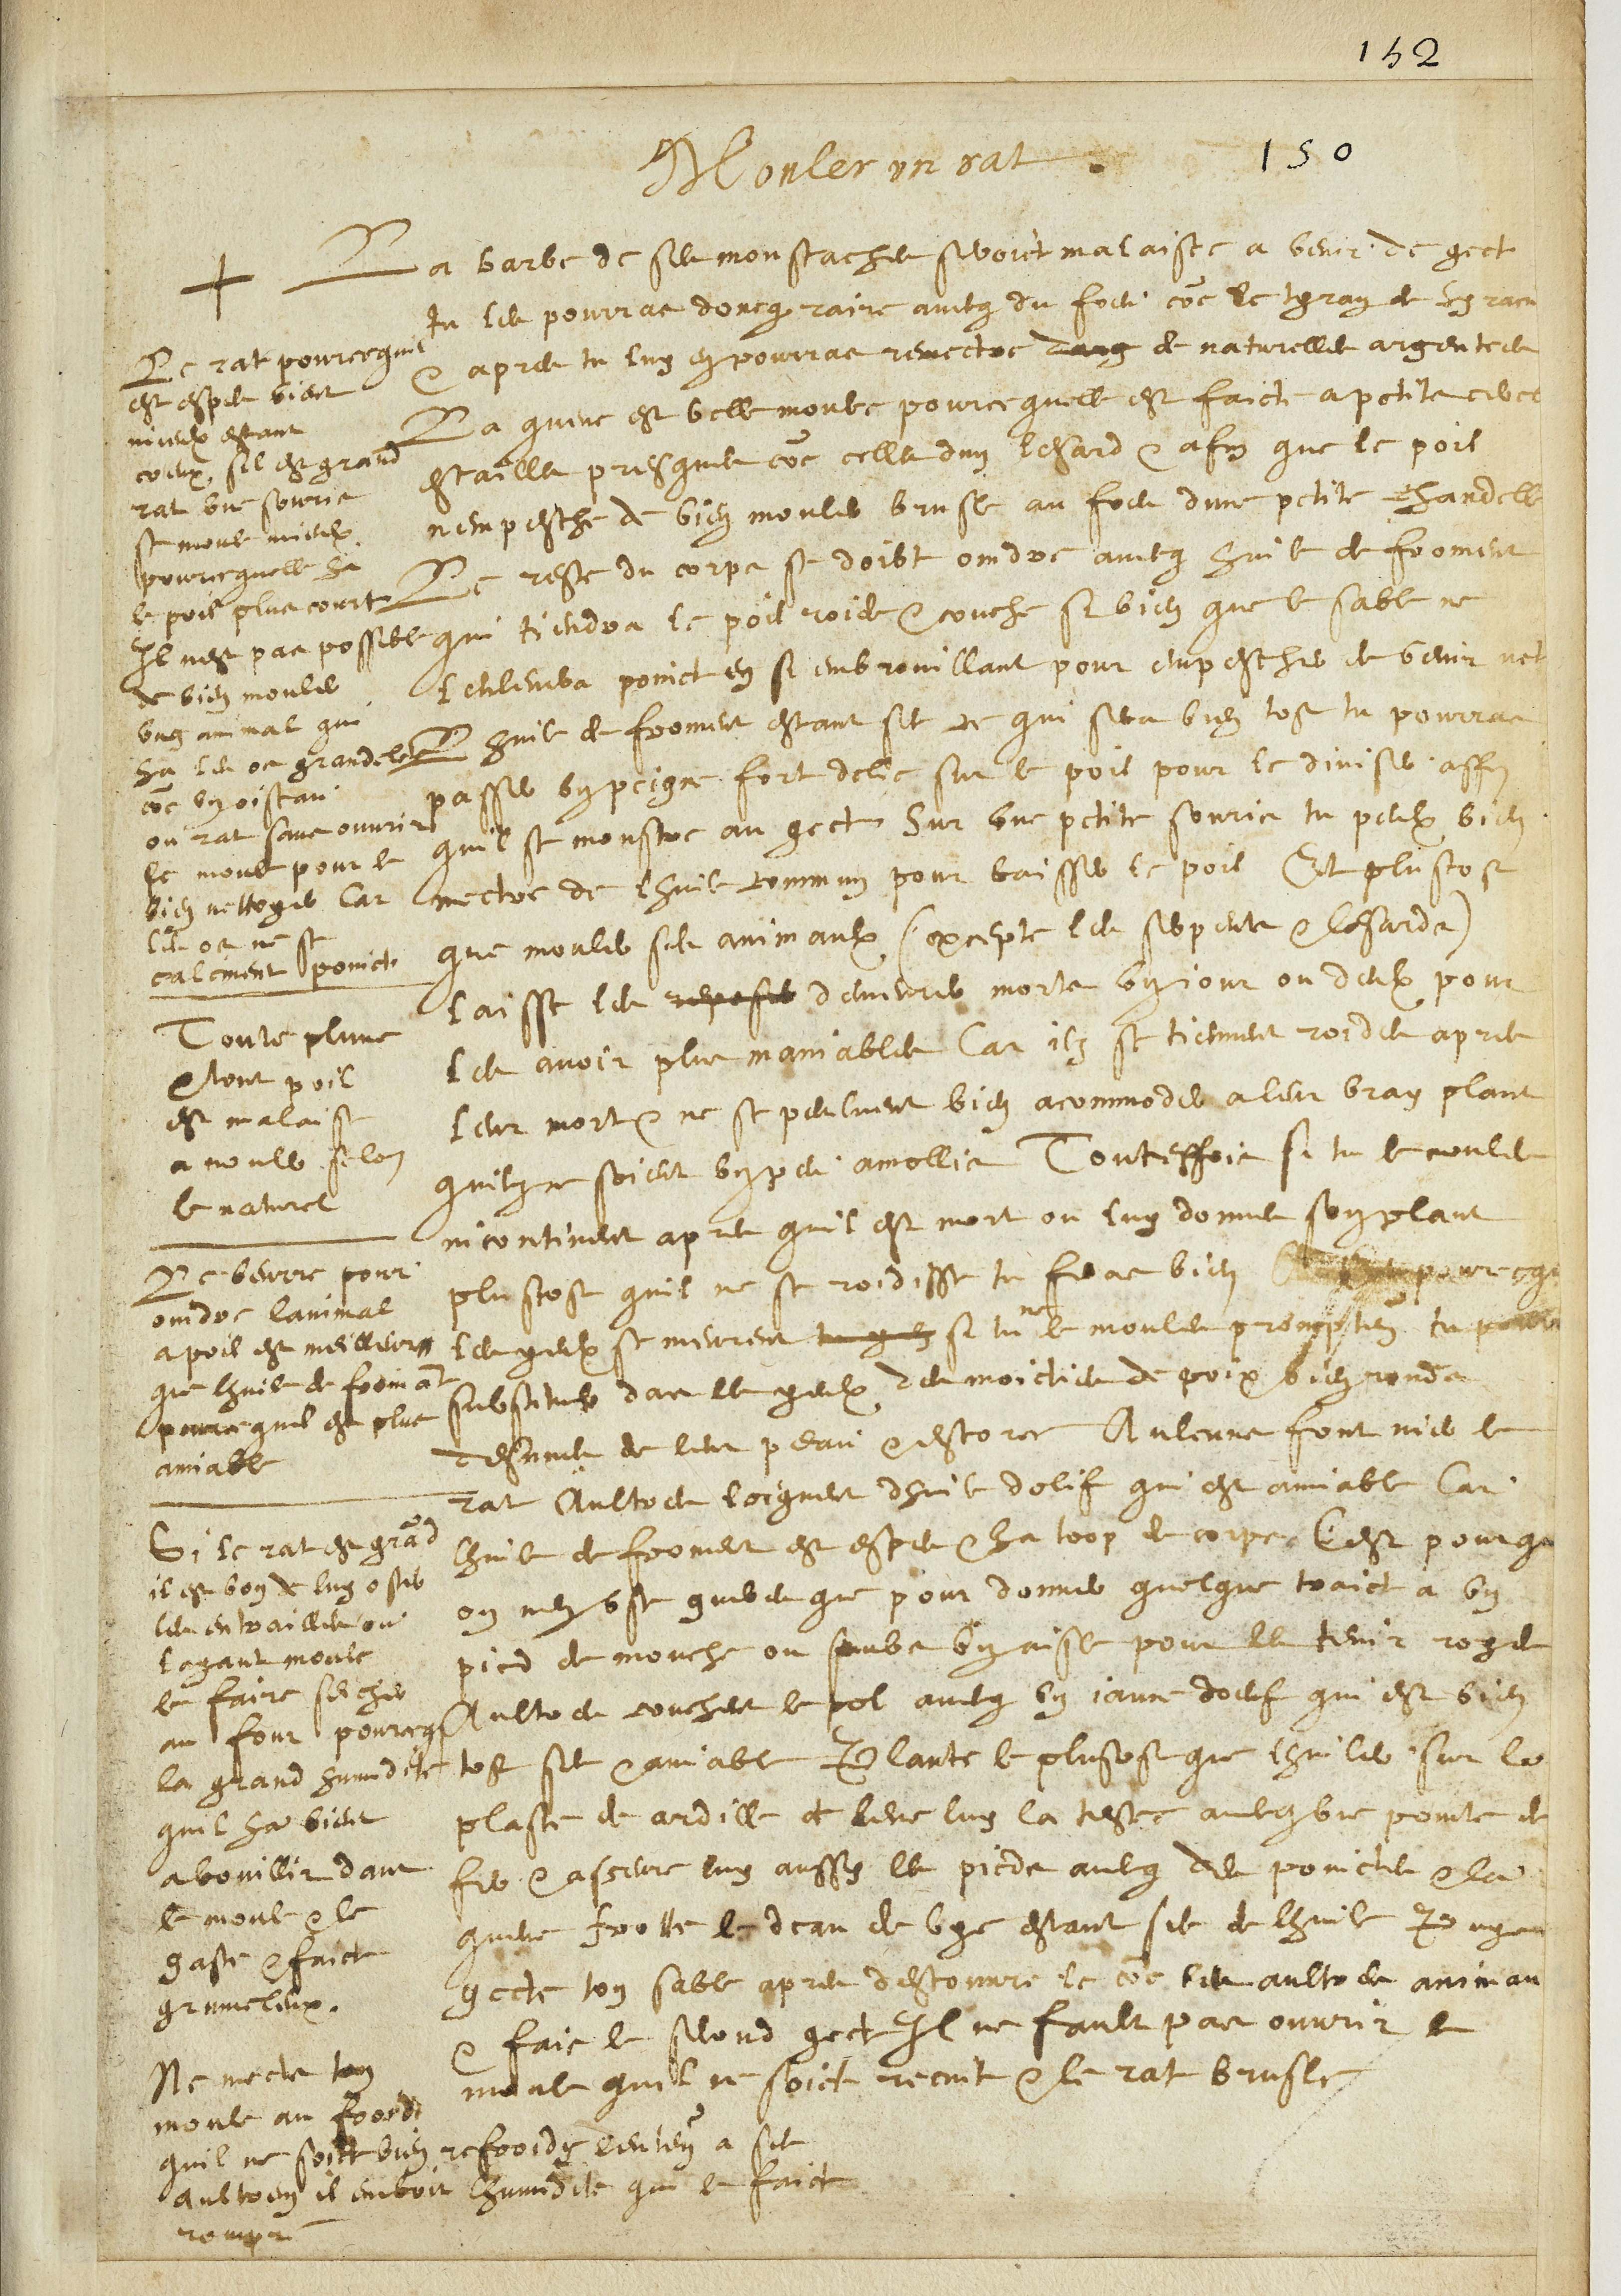 152
150
Mouler un rat
+
La barbe de ses monstaches seroict malaisee a venir de gect
Tu les pourras doncq raire avecq du foeu coe le tyran de Syrac
& apres tu luy en pourras remectre de naturelles argentees
La queue est belle moulee pourcequelle est faicte a petites
escailles presques coe celle dun lesard & afin que le poil
nempesche de bien mouler brusle au foeu dune petite chandelle
Le reste du corps se doibt oindre avecq huile de froment
qui tiendra le poil roide & couche si bien que le sable ne
lenlevera poinct en sembrouillant pour empescher de venir net
Lhuile de froment estant sec ce qui sera bien tost tu pourras
passer un peigne fort delie sur le poil pour le diviser affin
quil se monstre au gect Sur une petite souris tu peulx bien
mectre de lhuile commun pour baisser le poil Et plustost
que mouler ses animaulx (excepte les serpents & lesards)
laisse les reposer demeurer morts un jour ou deulx pour
les avoir plus maniables Car ilz se tiennent roides apres
leur mort & ne se peulvent bien acommoder a leur vray plant
quilz ne soient un peu amollis Touteffois si tu le moules
incontinent apres quil est mort ou luy donnes son plant
plustost quil ne se roidisse tu feras bien pourceq
les yeulx se meurent si tu ne le moules promptem tu pourras
substituer dans les yeulx des moicties de poix bien rondes
desnues de leur peau & escorce Aulcuns font nier le
rat Aultres loignent dhuile dolif qui est amiable Car
lhuile de froment est espes & ha trop de corps Cest pourq
on nen use gueres que pour donner quelque traict a un
pied de mouche ou semblable aisle pour les tenir roydes
Aultres couchent le pol avecq un jaune doeuf qui est bien
tost sec & amiable Plante le plustost que lhuiler sur la
plaste de ardille & leve luy la teste avecq une poincte de
fer & asseure luy aussy les pieds avecq des poinctes & la
queue frotte le deau de vye estant sec de lhuile Puys
gecte ton sable apres descouvre le coe les aultres animau
& fais le second gect Il ne fault pas ouvrir le
moule quil ne soict recuit & le rat brusle
Le rat pourcequil
est espes vient
mieulx estant
creux, sil est grand
rat une souris
se moule mieulx
pourcequelle ha
le poil plus court
Il nest pas possible
de bien mouler
un animal qui
ha les os grandelets
coe un oiseau
ou rat sans ouvrir
le moule pour le
bien nettoyer Car
les os ne se
calcinent poinct
Toute plume
& tout poil
est malaise
a mouler selon
le naturel
Le beurre pour
oindre lanimal
a poil est meilleur
que lhuile de fromant
pourcequil est plus
amiable
Si le rat est grand
il est bon de luy oster
les entrailles ou
layant moule
le faire secher
au four pourceq
la grand humidite
quil ha vient
a bouillir dans
le moule & le
gaste & faict
grumeleux.
Ne mects ton
moule au froid
quil ne soict bien refroidy lentem a sec
aultrem il emboit lhumidite qui le faict
rompre